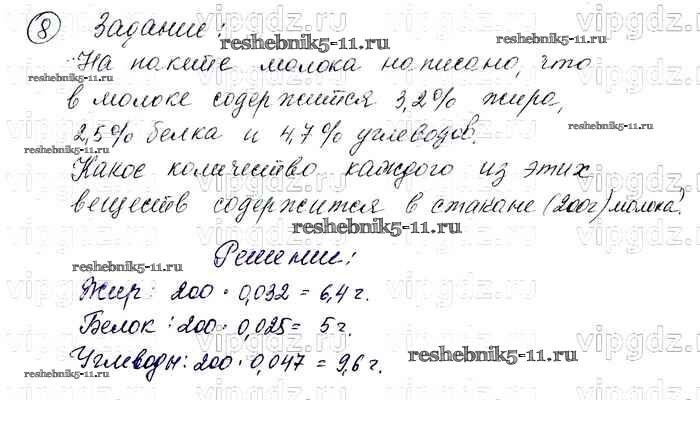 8 Задание:
reshebnik5-11.ru
На пакете молока написано, что
reshebnik5-11.ru
в молоке содержится 3,2% жира,
2,5% белка и 4,7% углеводов.
reshebnik5-11.ru
Какое количество каждого из этих
веществ содержится в стакане (200г) молока?
reshebnik5-11.ru
Решение:
reshebnik5-11.ru
Жир: 200 · 0,032 = 6,4 г.
Белок: 200 · 0,025 = 5 г.
Углеводы: 200 · 0,047 = 9,6 г.
reshebnik5-11.ru
reshebnik5-11.ru
vipgdz.ru